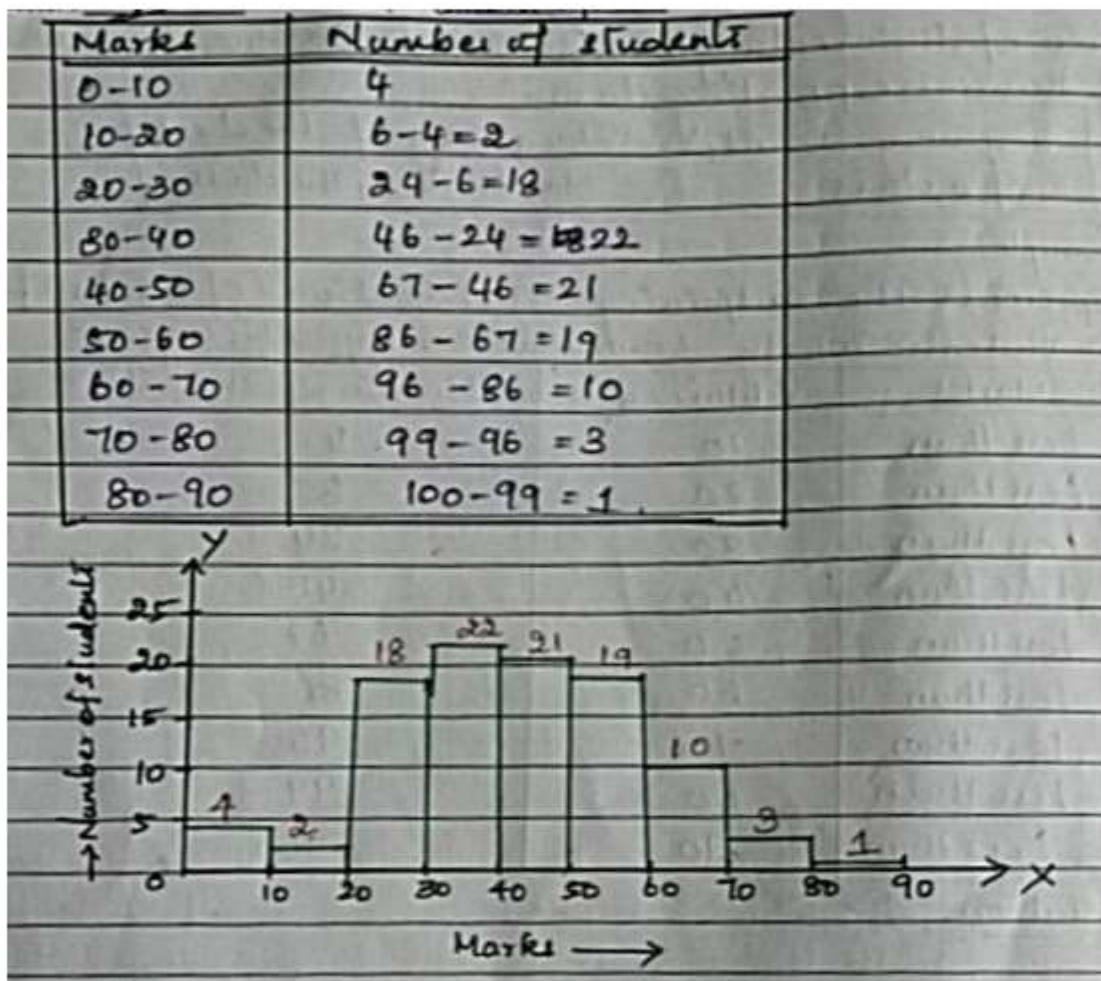 Marks Number of students
0-10 4
10-20 6-4=2
20-30 24-6=18
30-40 46-24=22
40-50 67-46=21
50-60 86-67=19
60-70 96-86=10
70-80 99-96=3
80-90 100-99=1.
Y
→Number of students
25
20
15
10
5
0
4 2 18 22 21 19 10 3 1
10 20 30 40 50 60 70 80 90 X
Marks →